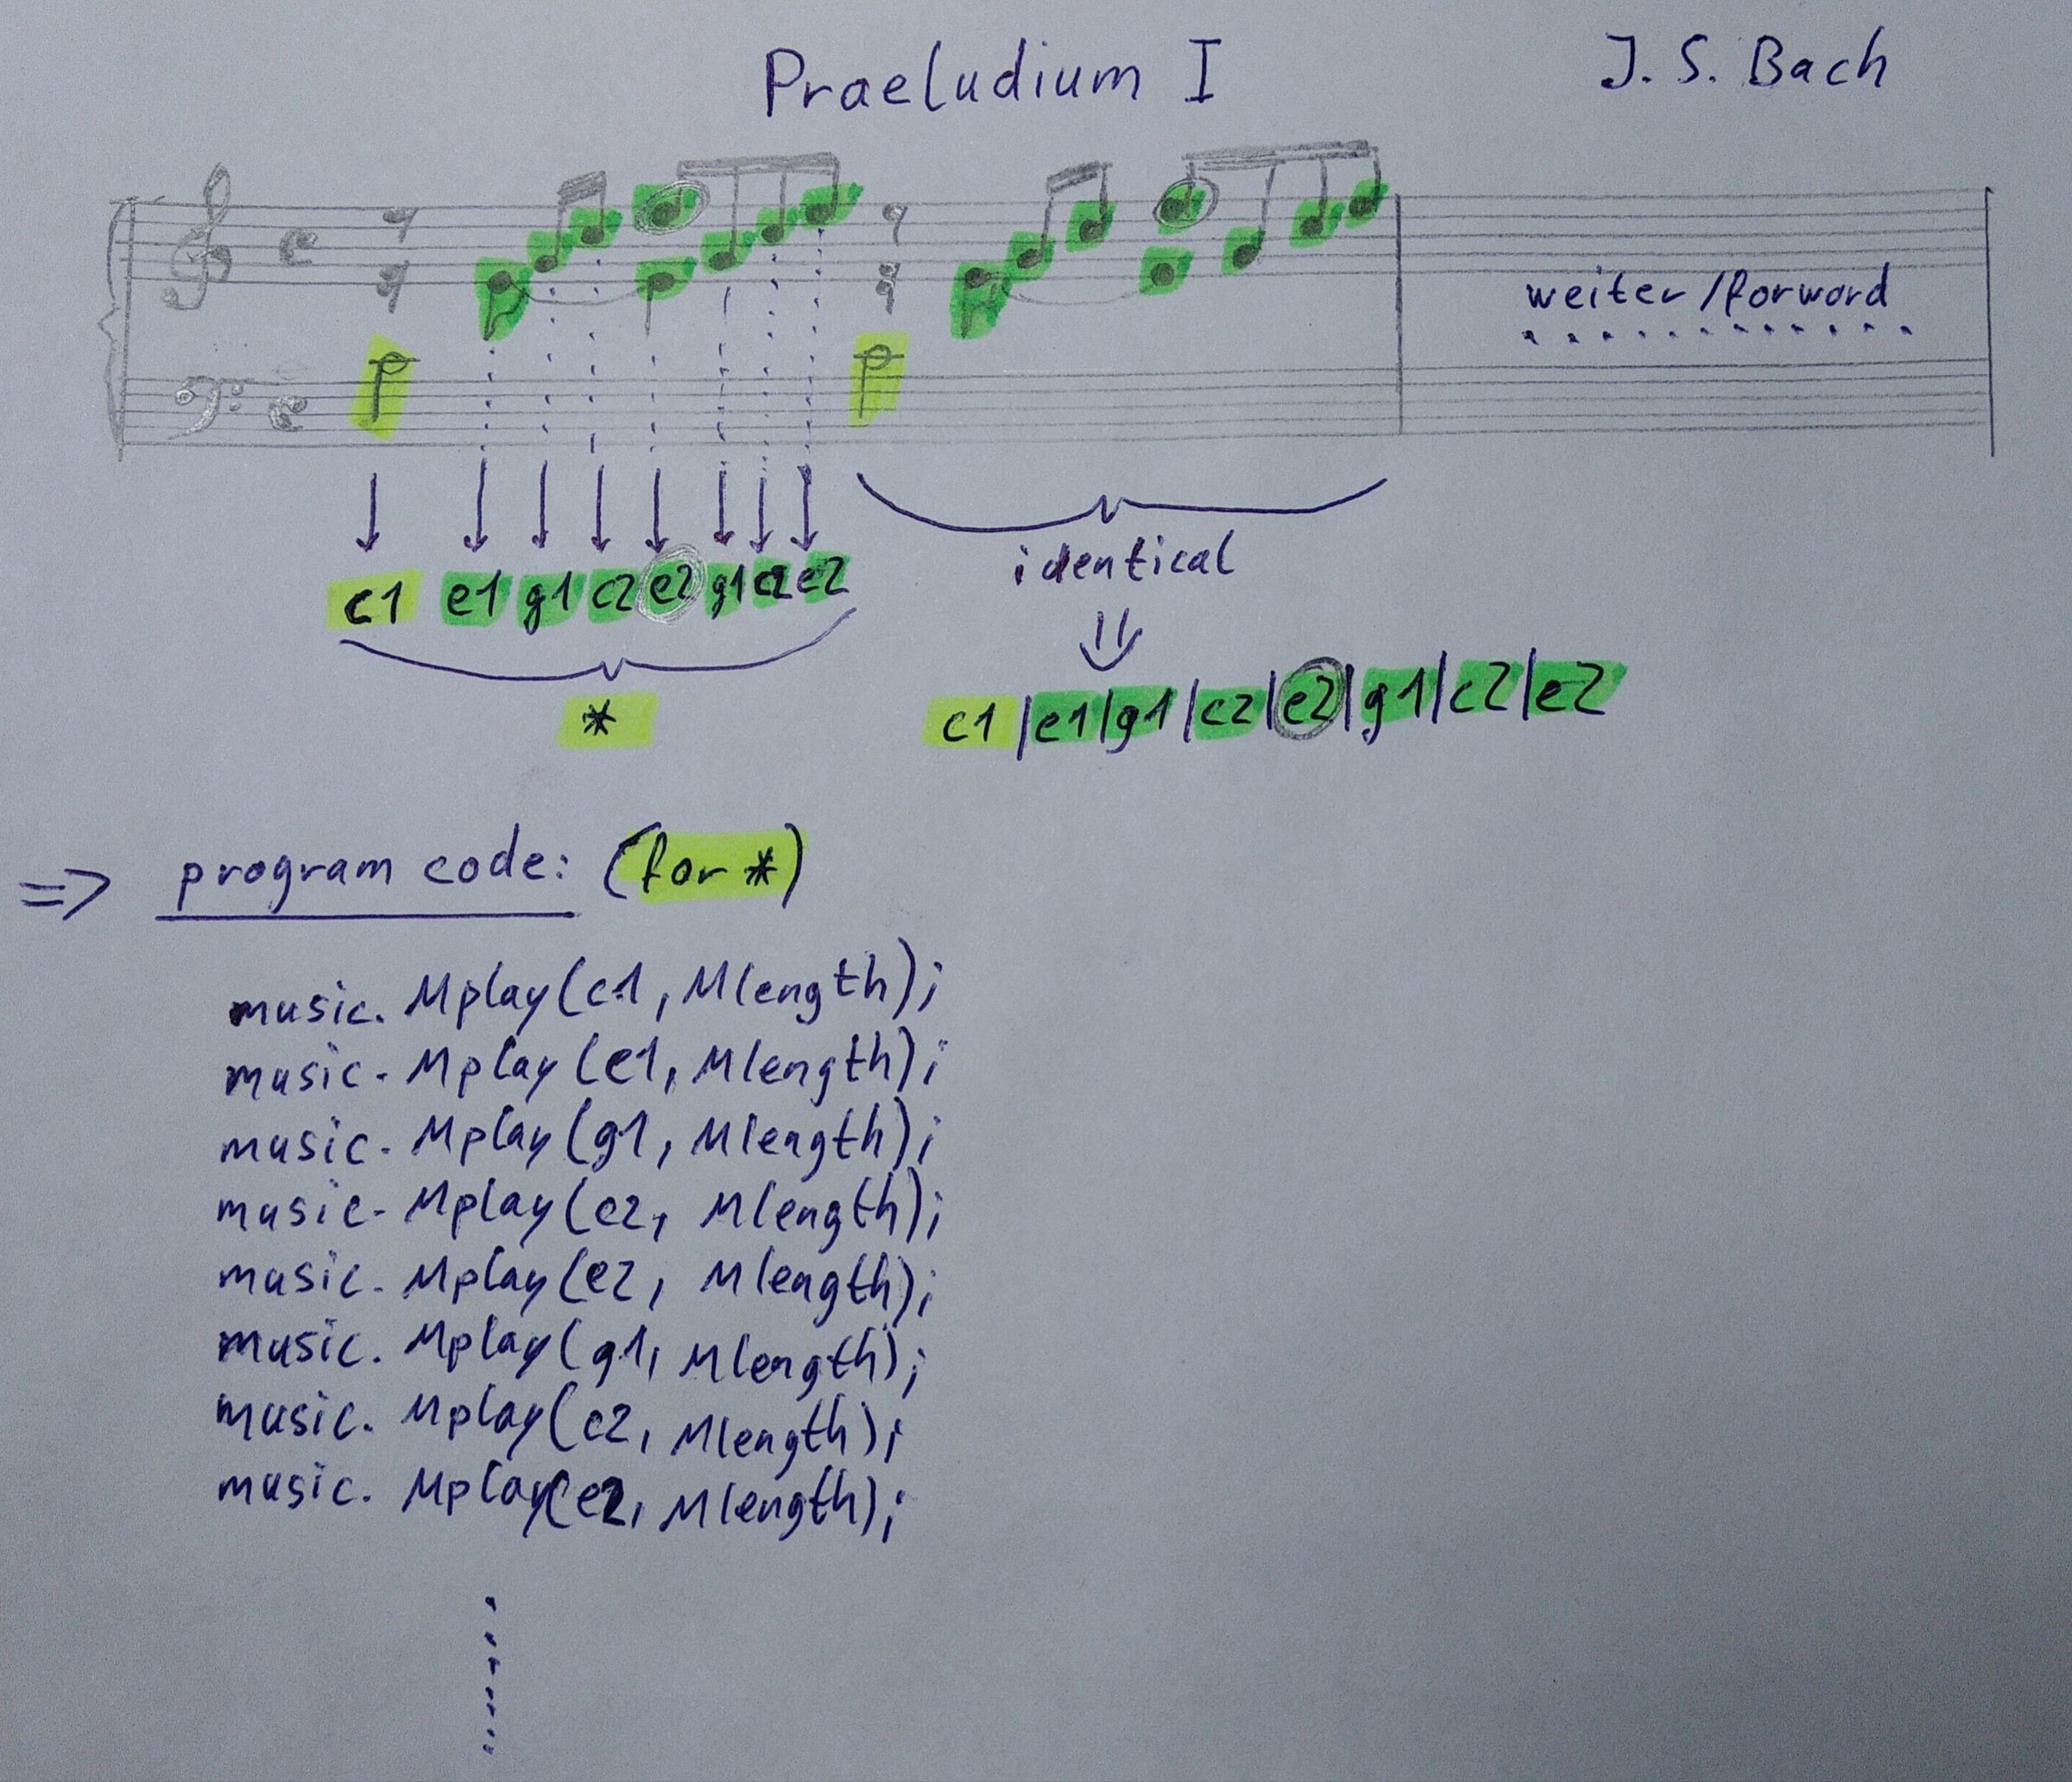 Praeludium I
J. S. Bach
weiter/forword
c1 e1 g1 c2 e2 g1 c2 e2
identical
*
c1 | e1 | g1 | c2 | e2 | g1 | c2 | e2
=> program code: (for *)
music. Mplay(c1, Mlength);
music. Mplay(e1, Mlength);
music. Mplay(g1, Mlength);
music. Mplay(c2, Mlength);
music. Mplay(e2, Mlength);
music. Mplay(g1, Mlength);
music. Mplay(c2, Mlength);
music. Mplay(e2, Mlength);